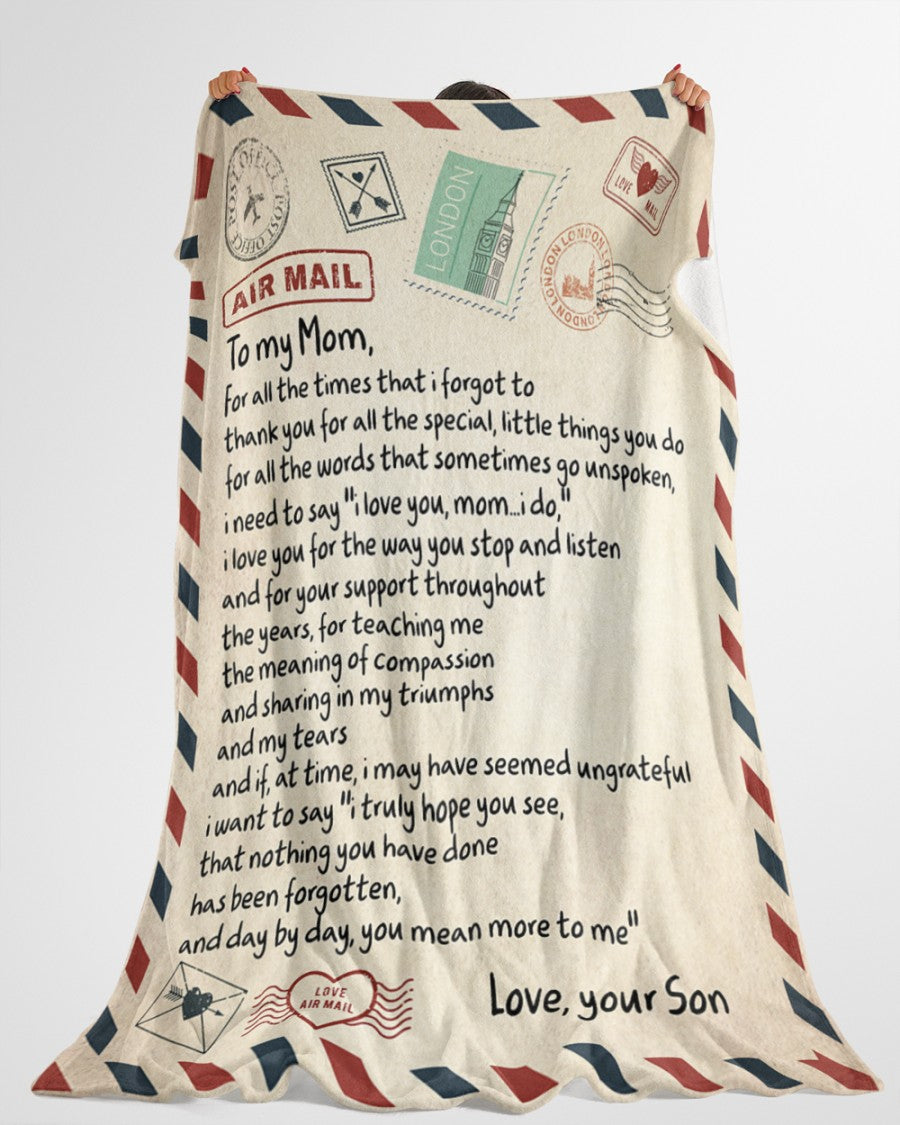 POST OFFICE POST OFFICE
LONDON
LOVE MAIL
LONDON LONDON LONDON LONDON
AIR MAIL
To my Mom,
For all the times that i forgot to
thank you for all the special, little things you do
for all the words that sometimes go unspoken,
i need to say "i love you, mom...i do,"
i love you for the way you stop and listen
and for your support throughout
the years, for teaching me
the meaning of compassion
and sharing in my triumphs
and my tears
and if, at time, i may have seemed ungrateful
i want to say "i truly hope you see,
that nothing you have done
has been forgotten,
and day by day, you mean more to me"
LOVE
AIR MAIL
Love, your Son